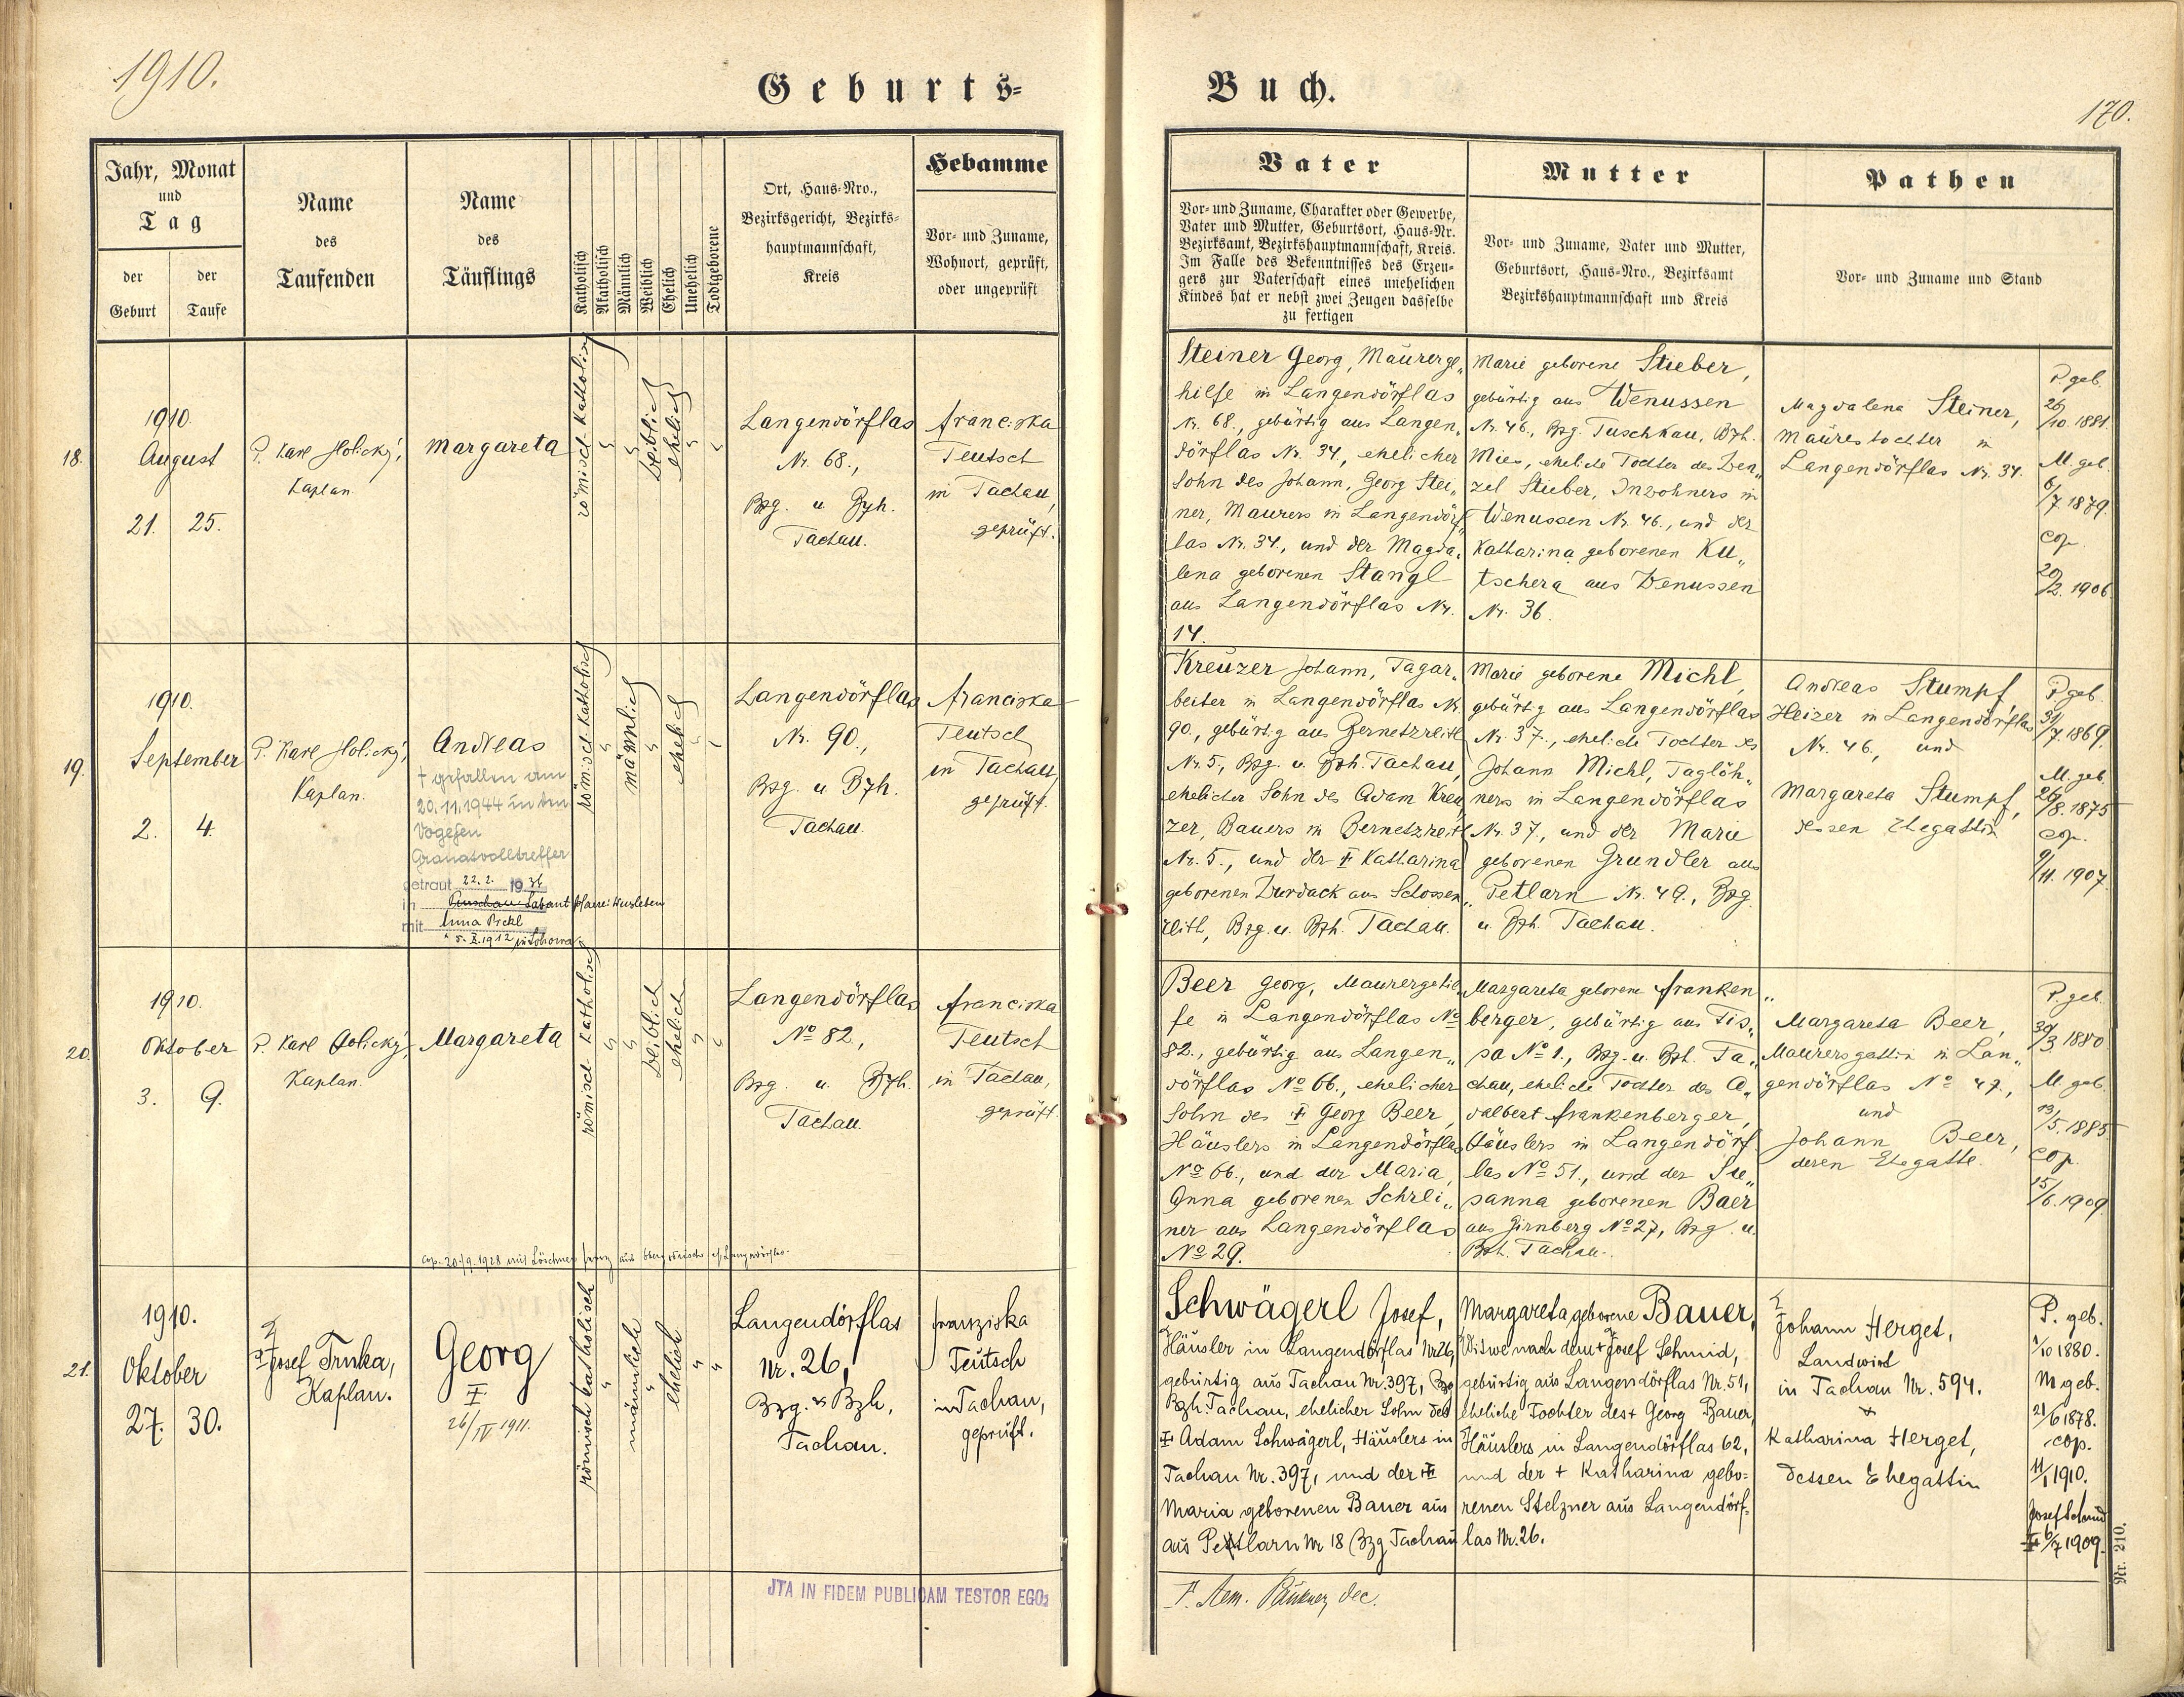 1910.
Geburts-
Buch.
170.
Jahr, Monat
und
Tag
der
Geburt
der
Taufe
Name
des
Taufenden
Name
des
Täuflings
Katholisch
Akatholisch
Männlich
Weiblich
Ehelich
Unehelich
Todtgeborene
Ort, Haus-Nro.,
Bezirksgericht, Bezirks-
hauptmannschaft,
Kreis
Hebamme
Vor- und Zuname,
Wohnort, geprüft,
oder ungeprüft
Vater
Vor- und Zuname, Charakter oder Gewerbe,
Vater und Mutter, Geburtsort, Haus-Nr.
Bezirksamt, Bezirkshauptmannschaft, Kreis.
Im Falle des Bekenntnisses des Erzeu-
gers zur Vaterschaft eines unehelichen
Kindes hat er nebst zwei Zeugen dasselbe
zu fertigen
Mutter
Vor- und Zuname, Vater und Mutter,
Geburtsort, Haus-Nro., Bezirksamt
Bezirkshauptmannschaft und Kreis
Pathen
Vor- und Zuname und Stand
18.
1910.
August
21. 25.
P. Karl Holický,
Kaplan
Margareta
römisch katholisch
weiblich
ehelich
Langendörflas
Nr. 68.,
Bzg. u Bzh.
Tachau.
Franciska
Teutsch
in Tachau,
geprüft.
Steiner Georg, Maurerge„
hilfe in Langendörflas
Nr. 68., gebürtig aus Langen„
dörflas Nr. 34., ehelicher
Sohn des Johann, Georg Stei„
ner, Maurers in Langendörf„
las Nr. 34., und der Magda„
lena geborenen Stangl
aus Langendörflas Nr.
14.
Marie geborene Stieber,
gebürtig aus Wenussen
Nr. 46., Bzg. Tuschkau, Bzh.
Mies, eheliche Tochter des Wen„
zel Stieber, Inwohners in
Wenussen Nr. 46., und der
Katharina geborenen Ku„
tschera aus Wenussen
Nr. 36.
Magdalena Steiner,
Maurerstochter in
Langendörflas Nr. 34.
P. geb.
26/10. 1881.
M. geb.
6/7. 1879.
cop.
20/2. 1906.
19.
1910.
September
2. 4.
P. Karl Holický,
Kaplan.
Andreas
† gefallen am
20.11.1944 in den
Vogesen
Granatvolltreffer
getraut 22.2. 1936
in
mit Anna
römisch katholisch
männlich
ehelich
Langendörflas
Nr. 90.,
Bzg. u Bzh.
Tachau.
Franciska
Teutsch
in Tachau,
geprüft.
Kreuzer Johann, Tagar„
beiter in Langendörflas Nr.
90., gebürtig aus Bernetzreith
Nr. 5., Bzg. u. Bzh. Tachau,
ehelicher Sohn des Adam Kreu„
zer, Bauers in Bernetzreith
Nr. 5., und der † Katharina
geborenen Wurdack aus Schossen„
reith, Bzg. u. Bzh. Tachau.
Marie geborene Michl,
gebürtig aus Langendörflas
Nr. 37., eheliche Tochter des
Johann Michl, Taglöh„
ners in Langendörflas
Nr. 37., und der Marie
geborenen Gründler aus
Petlarn Nr. 49., Bzg.
u. Bzh. Tachau.
Andreas Stumpf,
Heizer in Langendörflas
Nr. 46., und
Margareta Stumpf,
dessen Ehegattin
P. geb.
31/7. 1869.
M. geb.
26/8. 1875
cop.
9/11. 1907.
20.
1910.
Oktober
3. 9.
P. Karl Holický,
Kaplan.
Margareta
römisch katholisch
weiblich
ehelich
Langendörflas
No 82.,
Bzg. u. Bzh.
Tachau.
Franciska
Teutsch
in Tachau,
geprüft.
cop. 20./9. 1928 mit Löschner
Beer Georg, Maurergehil„
fe in Langendörflas No
82., gebürtig aus Langen„
dörflas No 66., ehelicher
Sohn des † Georg Beer,
Häuslers in Langendörflas
No 66., und der Maria,
Anna geborenen Schrei„
ner aus Langendörflas
No 29.
Margareta geborene Franken„
berger, gebürtig aus Tis„
sa No 1., Bzg. u. Bzh. Ta„
chau, eheliche Tochter des A„
dalbert Frankenberger,
Häuslers in Langendörf„
las No 51., und der Su„
sanna geborenen Baer
aus Girnberg No 27, Bzg. u.
Bzh. Tachau.
Margareta Beer,
Maurersgattin in Lan„
gendörflas No 47.,
und
Johann Beer,
deren Ehegatte.
P. geb.
30/3. 1880
M. geb.
13/5. 1885
cop.
15/6. 1909
21.
1910.
Oktober
27. 30.
P. Josef Trnka,
Kaplan.
Georg
†
26/IV 1911.
römisch katholisch
männlich
ehelich
Langendörflas
Nr. 26,
Bzg. u Bzh.
Tachau.
Franziska
Teutsch
in Tachau,
geprüft.
Schwägerl Josef,
Häusler in Langendörflas Nr 26,
gebürtig aus Tachau Nr. 397, Bzg
Bzh. Tachau, ehelicher Sohn des
† Adam Schwägerl, Häuslers in
Tachau Nr. 397, und der †
Maria geborenen Bauer aus
aus Petlarn Nr 18 Bzg Tachau
Margareta geborene Bauer,
Witwe nach dem † Josef Schmid,
gebürtig aus Langendörflas Nr. 51,
eheliche Tochter des † Georg Bauer,
Häuslers in Langendörflas 62,
und der † Katharina gebo=
renen Stelzner aus Langendörf=
las Nr. 26.
Johann Herget,
Landwirt
in Tachau Nr. 594.
+
Katharina Herget,
dessen Ehegattin
P. geb.
1/10 1880.
M geb.
21/6 1878.
cop.
11/1 1910.
Josef Schmid
† 6/7 1909.
JTA IN FIDEM PUBLICAM TESTOR EGO:
Nr. 210.